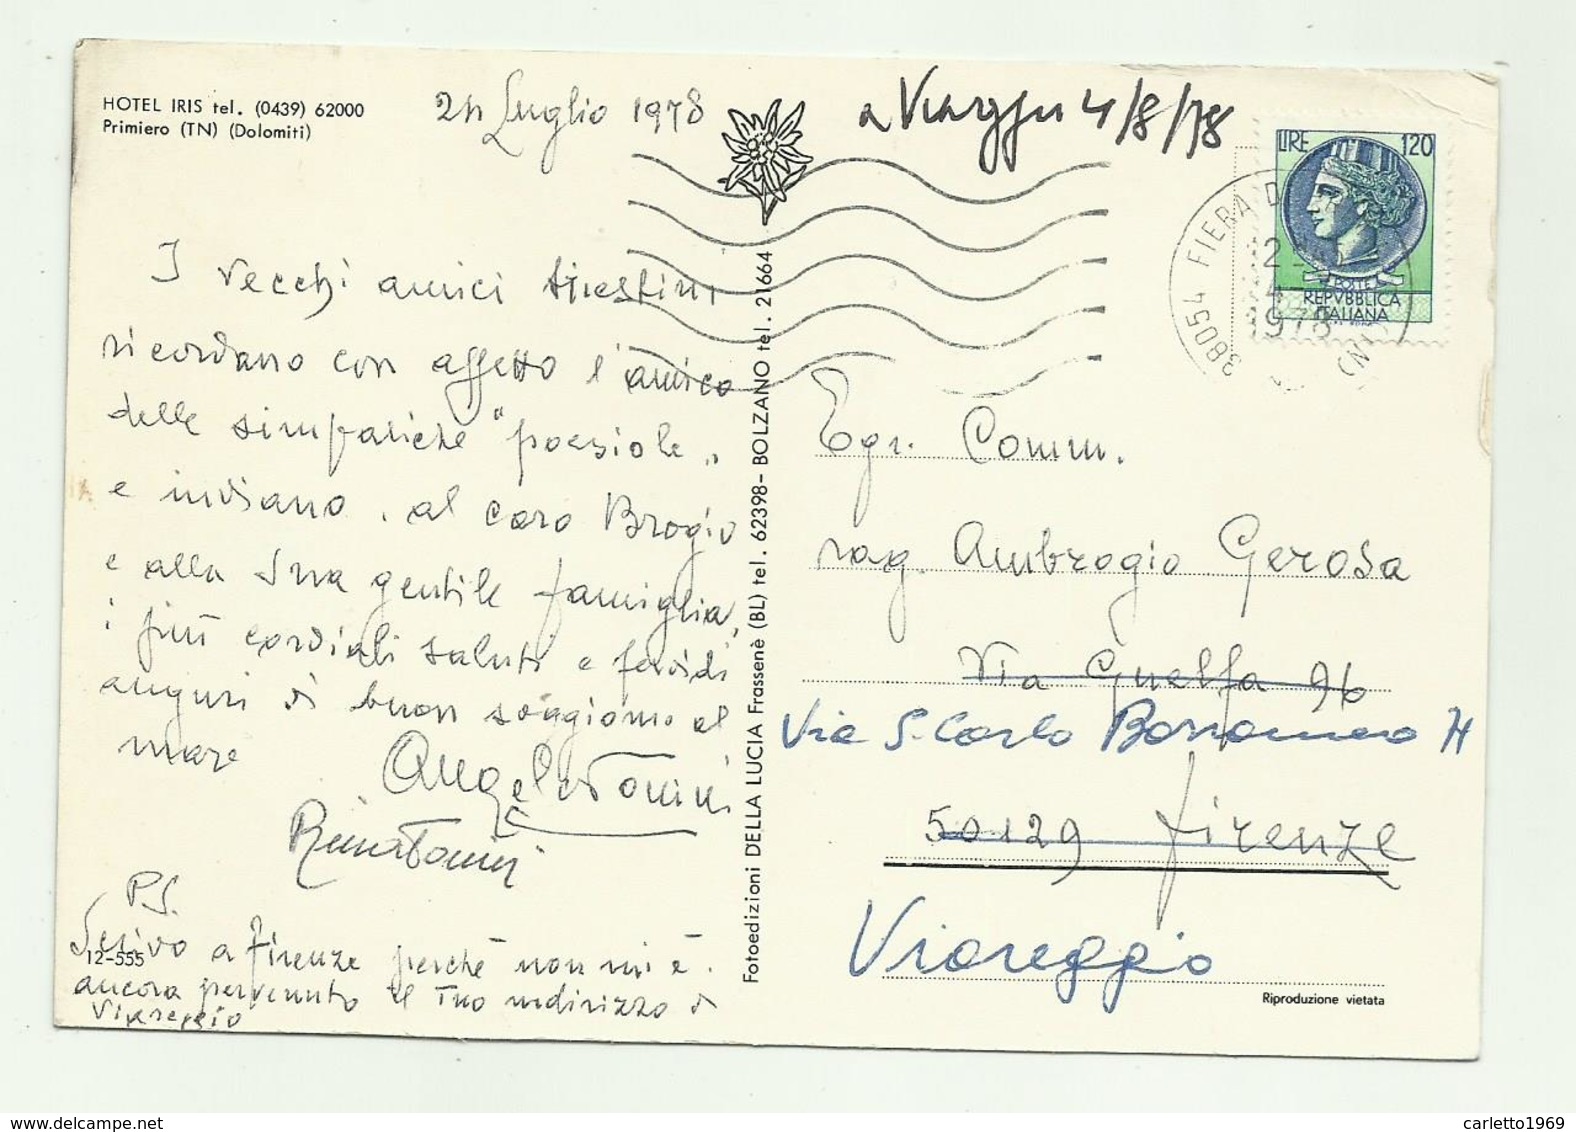 HOTEL IRIS tel. (0439) 62000
Primiero (TN) (Dolomiti)
24 Luglio 1978
a Viareggio 4/8/78
LIRE 120
POSTE
REPVBBLICA
ITALIANA
38054 FIERA D
1978
(TN)
I vecchi amici triestini
ricordano con affetto l'amico
delle simpatiche "poesiole"
e inviano, al caro Brogio
e alla Sua gentile famiglia,
i più cordiali saluti e fervidi
auguri di buon soggiorno al
mare
Angelo Tonini
Rina Tonini
P.S.
Scrivo a Firenze perchè non mi è
ancora pervenuto il Tuo indirizzo di
Viareggio
12-555
Fotoedizioni DELLA LUCIA Frassenè (BL) tel. 62398 - BOLZANO tel. 21664
Egr. Comm.
rag. Ambrogio Gerosa
Via Guelfa 96
Via S. Carlo Borromeo
50129 Firenze
Viareggio
Riproduzione vietata
carletto1969